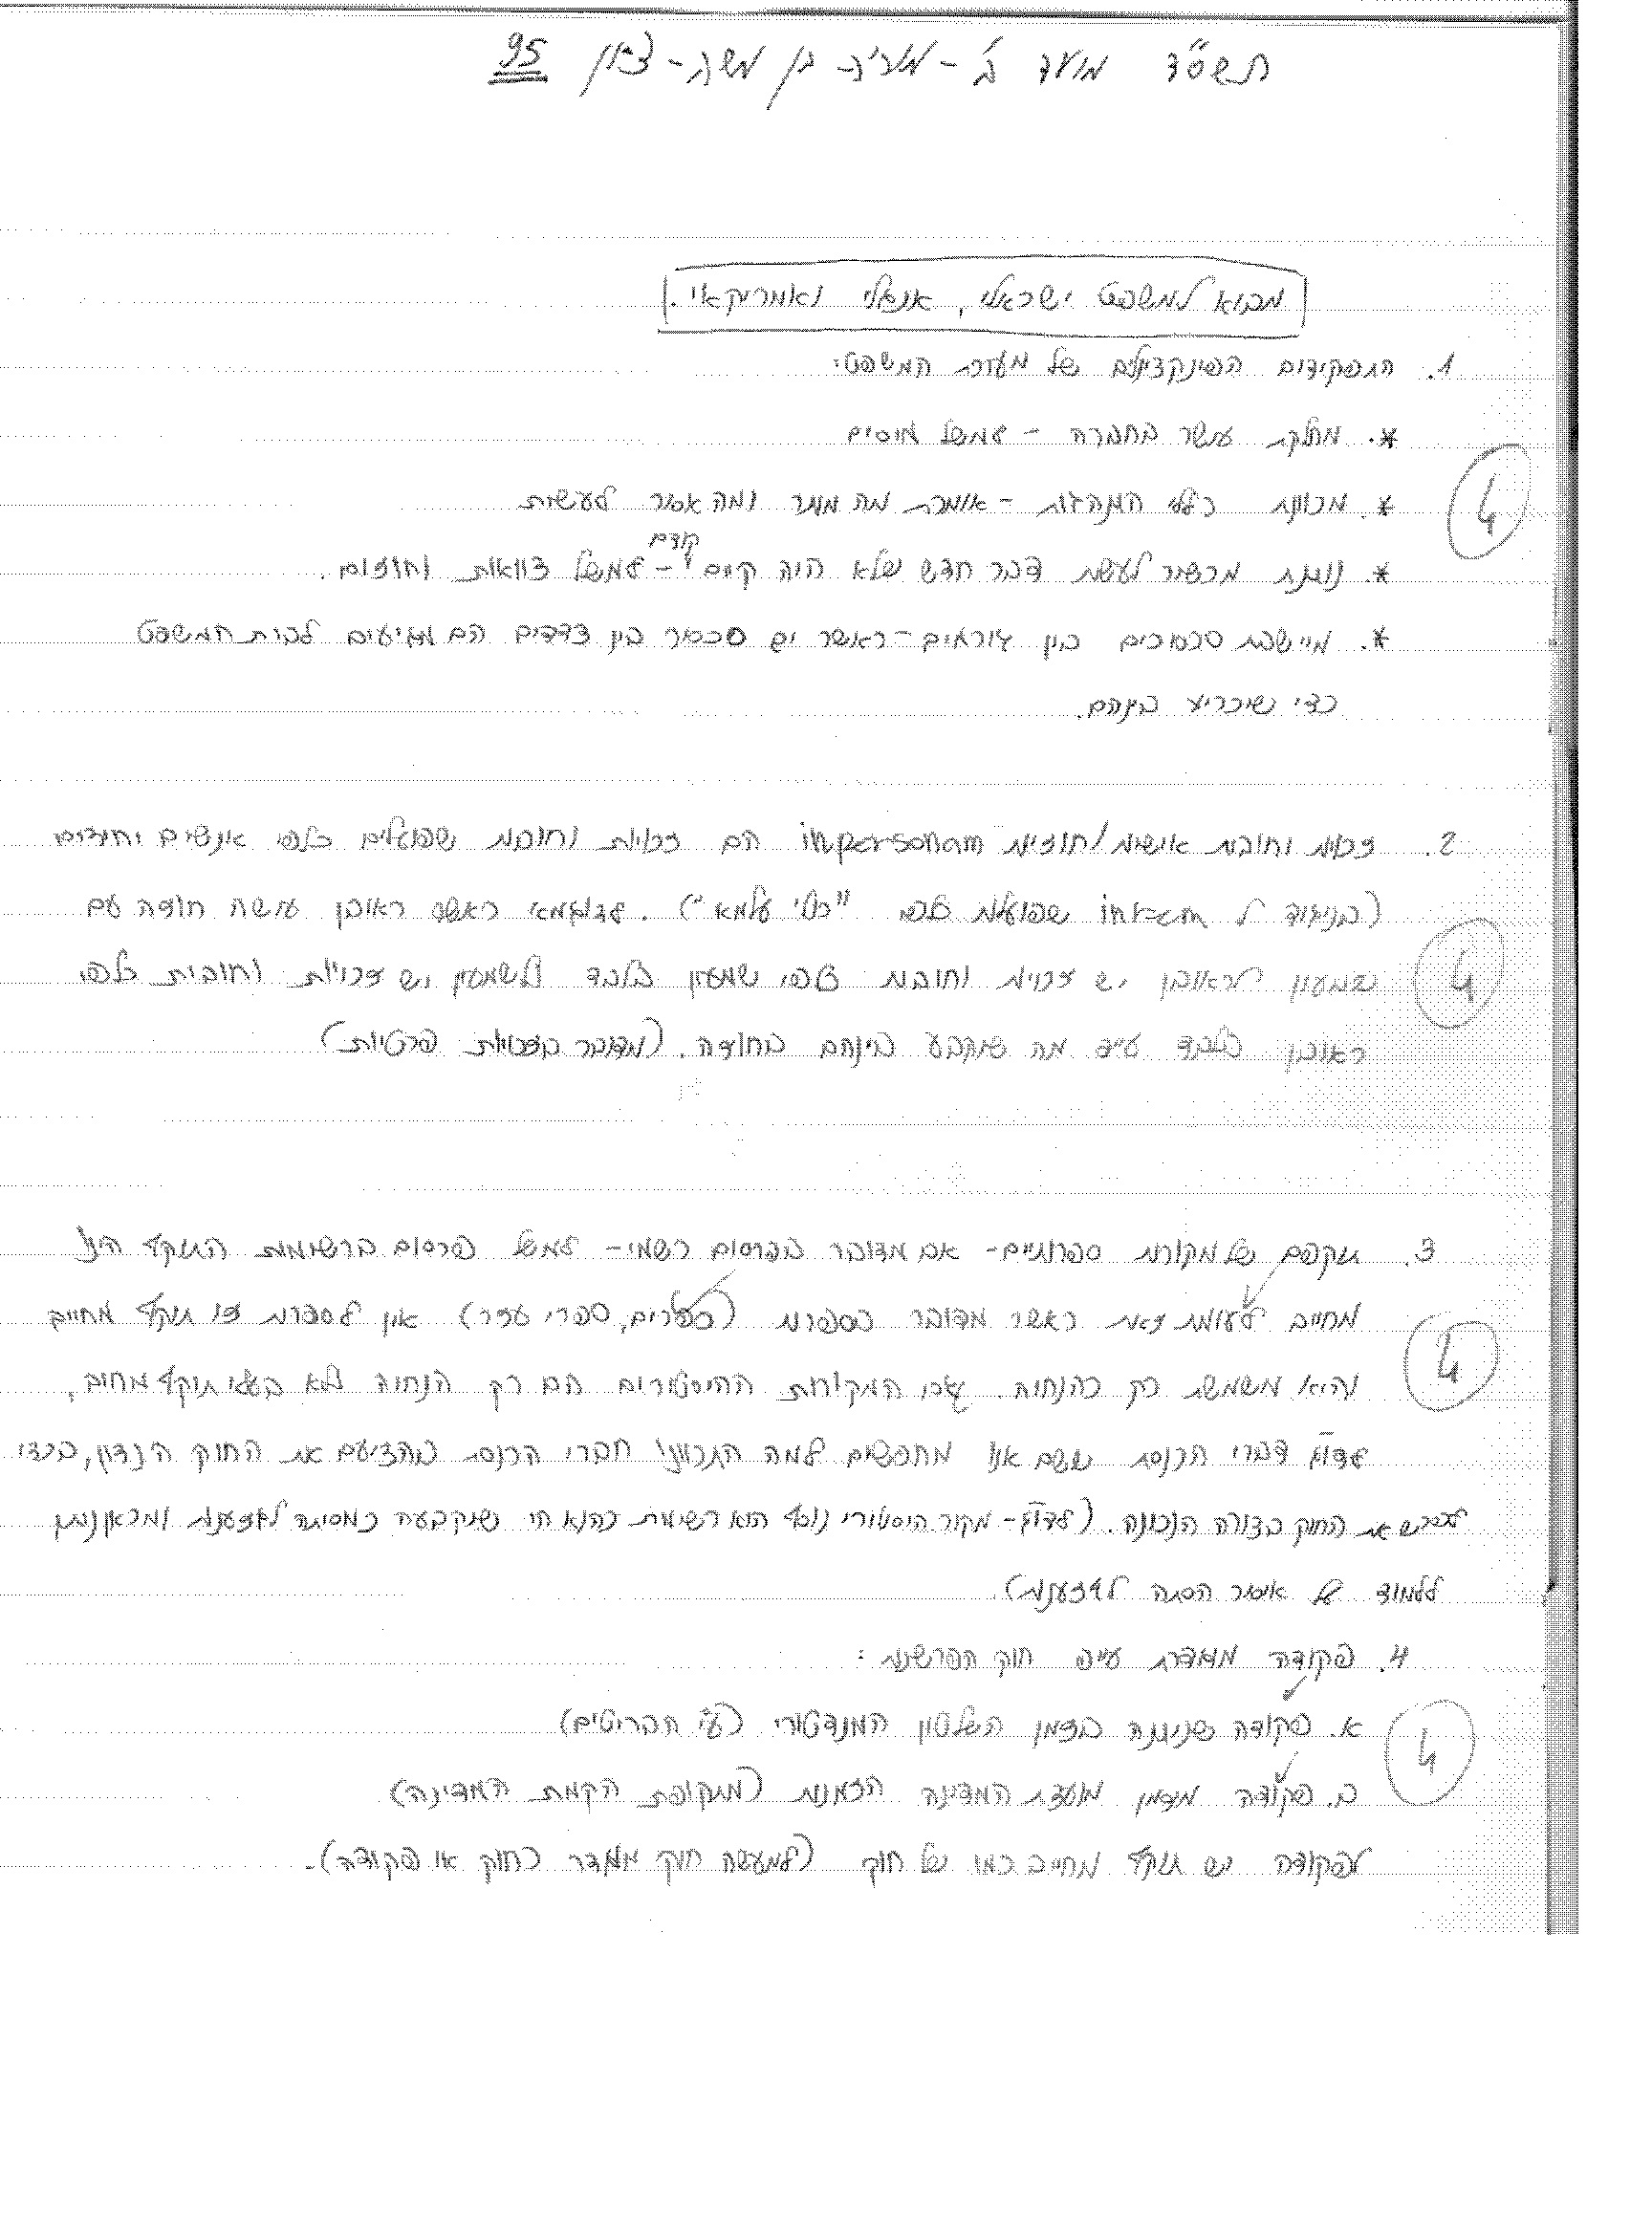 תשס"ד מועד ב' - בן משה - ציון 95
מבוא למשפט ישראלי, אנגלי ואמריקאי.
1. התפקידים הפונקציונלים של מערכת המשפט:
*. מחלקת עושר בחברה - למשל מיסים
*. מכוונת כללי התנהגות - אומרת מה מותר ומה אסור לעשות
קודם
*. נותנת מכשיר לעשות דבר חדש שלא היה קיים - למשל צוואות וחוזים.
*. מיישבת סכסוכים בין אזרחים - כאשר יש סכסוך בין צדדים הם מגיעים לבית המשפט
כדי שיכריע ביניהם.
2. זכויות וחובות אישיות/חוזיות inpersonam הם זכויות וחובות שפועלים כלפי אנשים יחודיים
(בניגוד ל inrem שפועלות כלפי "כולי עלמא"). לדוגמא כאשר ראובן עושה חוזה עם
שמעון לראובן יש זכויות וחובות כלפי שמעון בלבד ולשמעון יש זכויות וחובות כלפי
ראובן בלבד ע"פ מה שנקבע ביניהם בחוזה. (מדובר בזכויות פרטיות)
3. תוקפם של מקורות ספרותיים - אם מדובר בפרסום רשמי - למשל פרסום ברשומות התוקף הינו
מחייב לעומת זאת כאשר מדובר בספרות (ספרים, ספרי עזר) אין לספרות זו תוקף מחייב
והיא משמשת רק כהנחיה. המקורות ההיסטורים הם רק הנחיה ולא בעלי תוקף מחייב,
לדוג' דברי הכנסת ששם אנו מחפשים למה התכוונו חברי הכנסת בהציעם את החוק הנדון, בכדי
לפרש את החוק בצורה הנכונה. (לדוג' - מקור היסטורי נוסף הוא רשימות שנקבעה כמסיתה לגזענות ומכאן ניתן
ללמוד על איסור הסתה לגזענות)
4. פקודה מוגדרת ע"פ חוק הפרשנות:
א. פקודה שניתנה בזמן השלטון המנדטורי (ע"י הבריטים)
ב. פקודה מזמן מועצת המדינה הזמנית (מתקופת הקמת המדינה)
לפקודה יש תוקף מחייב כמו של חוק (למעשה חוק מוגדר כחוק או פקודה).
4
4
4
4